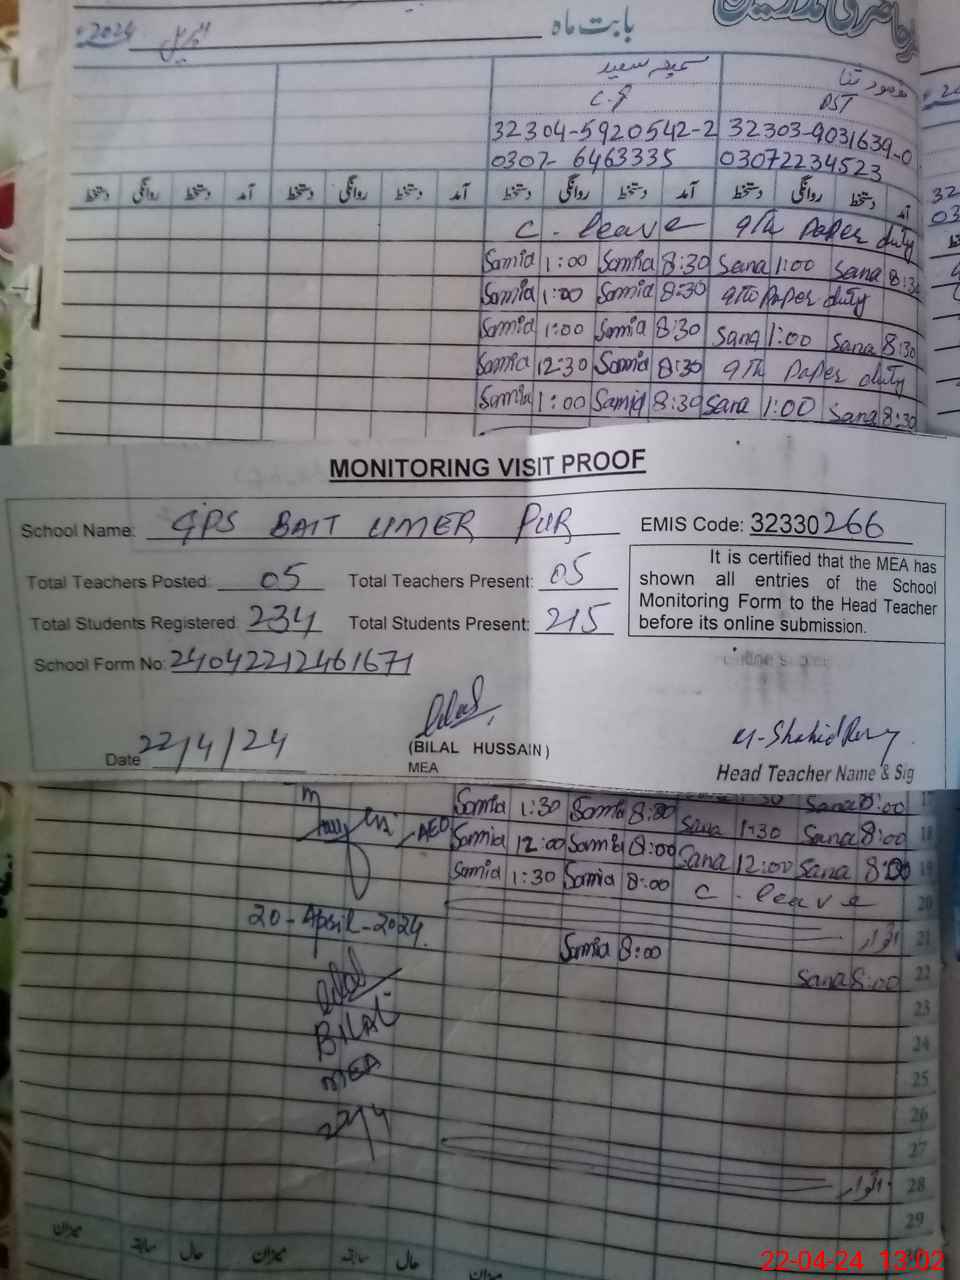 حاضری مدرسین
بابت ماہ اپریل 2024ء
سمیعہ سعید
مقصود ثنا
PST
32304-5920542-2 32303-9031639-0
0307-6463335 03072234523
دستخط روانگی دستخط آمد دستخط روانگی دستخط آمد دستخط روانگی دستخط آمد دستخط روانگی دستخط آمد
C. leave 9th Paper duty
Samia 1:00 Samia 8:30 Sana 1:00 Sana 8:30
Samia 1:00 Samia 8:30 9th Paper duty
Samia 1:00 Samia 8:30 Sana 1:00 Sana 8:30
Samia 12:30 Samia 8:30 9th Paper duty
Samia 1:00 Samia 8:30 Sana 1:00 Sana 8:30
MONITORING VISIT PROOF
School Name: GPS BAIT UMER PUR EMIS Code: 32330266
Total Teachers Posted: 05 Total Teachers Present: 05
Total Students Registered: 234 Total Students Present: 215
It is certified that the MEA has
shown all entries of the School
Monitoring Form to the Head Teacher
before its online submission.
School Form No: 24042212461671
Date 22/4/24
Bilal
(BILAL HUSSAIN)
MEA
Head Teacher Name & Sig
Samia 1:30 Samia 8:00 Sana 8:00 17
AEO Samia 12:00 Samia 8:00 Sana 1:30 Sana 8:00 18
Samia 1:30 Samia 8:00 Sana 12:00 Sana 8:00 19
C. leave 20
20-April-2024 اتوار 21
Samia 8:00 Sana 8:00 22
Bilal
23
BILAL 24
MEA 25
22/4 26
27
اتوار 28
29
30
میزان سابقہ حال میزان سابقہ حال میزان
22-04-24 13:02